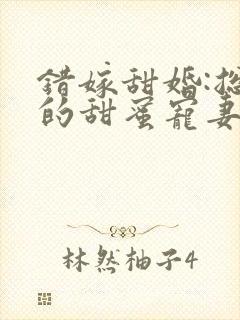 错嫁甜婚:
的甜蜜宠妻
林然柚子4